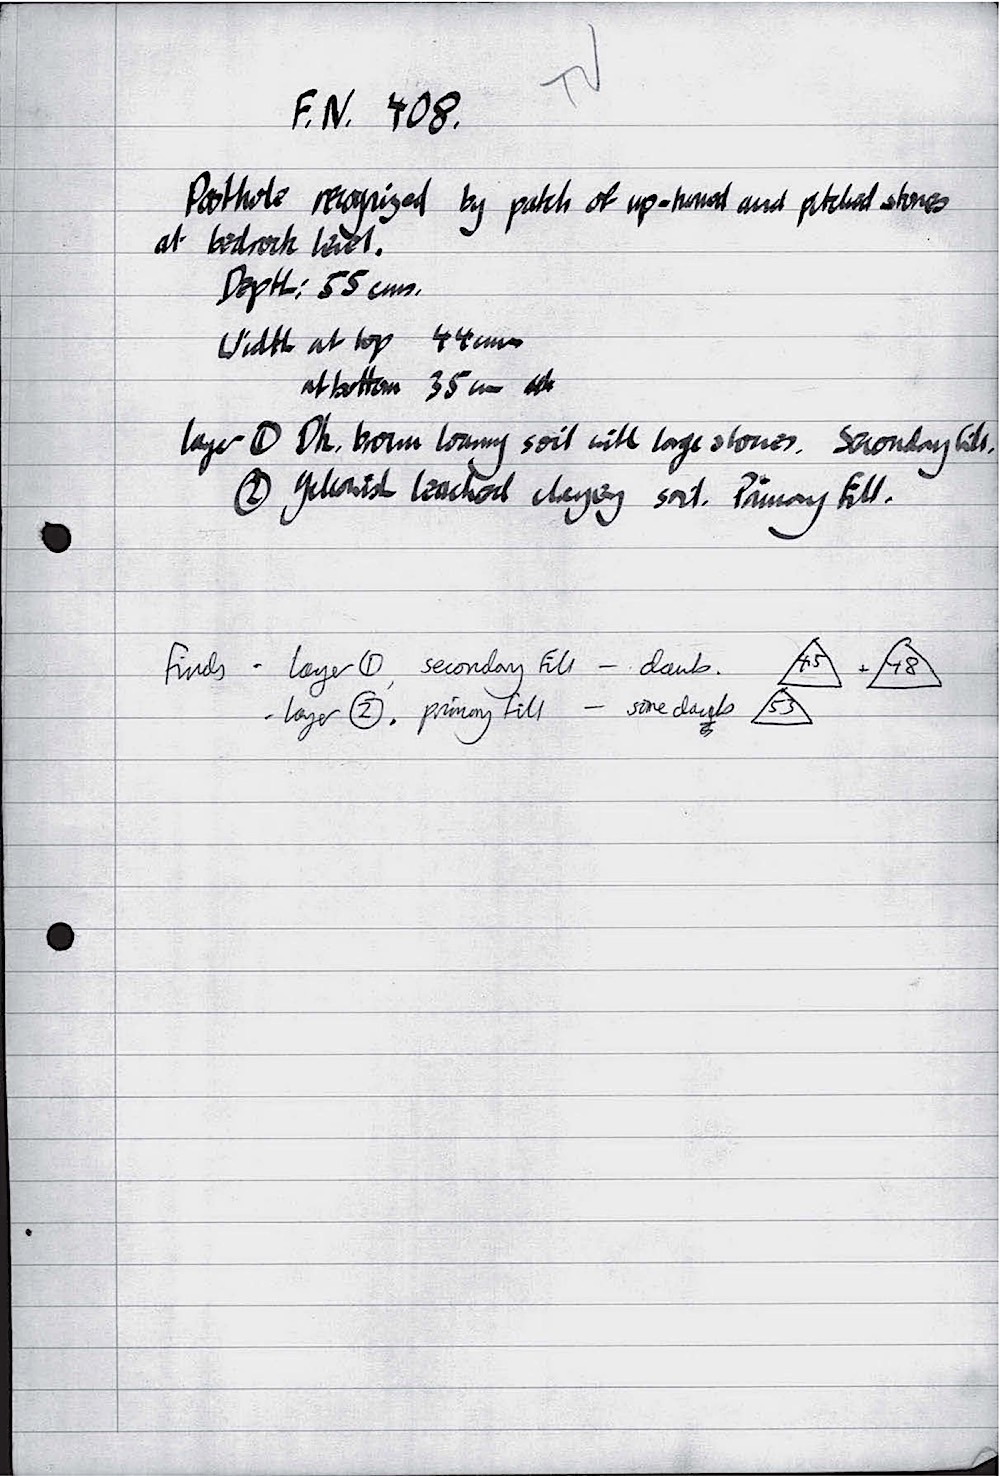 F.N. 408.
Posthole recognized by patch of up-turned and pitched stones
at bedrock level.
Depth: 55 cms.
Width at top 44 cms
at bottom 35 cm
layer ① Dk. brown loamy soil with large stones. Secondary fill.
② yellowish leached clayey soil. Primary fill.
Finds - layer ①, secondary fill – daub. 45 + 48
- layer ②. primary fill – some daub 53